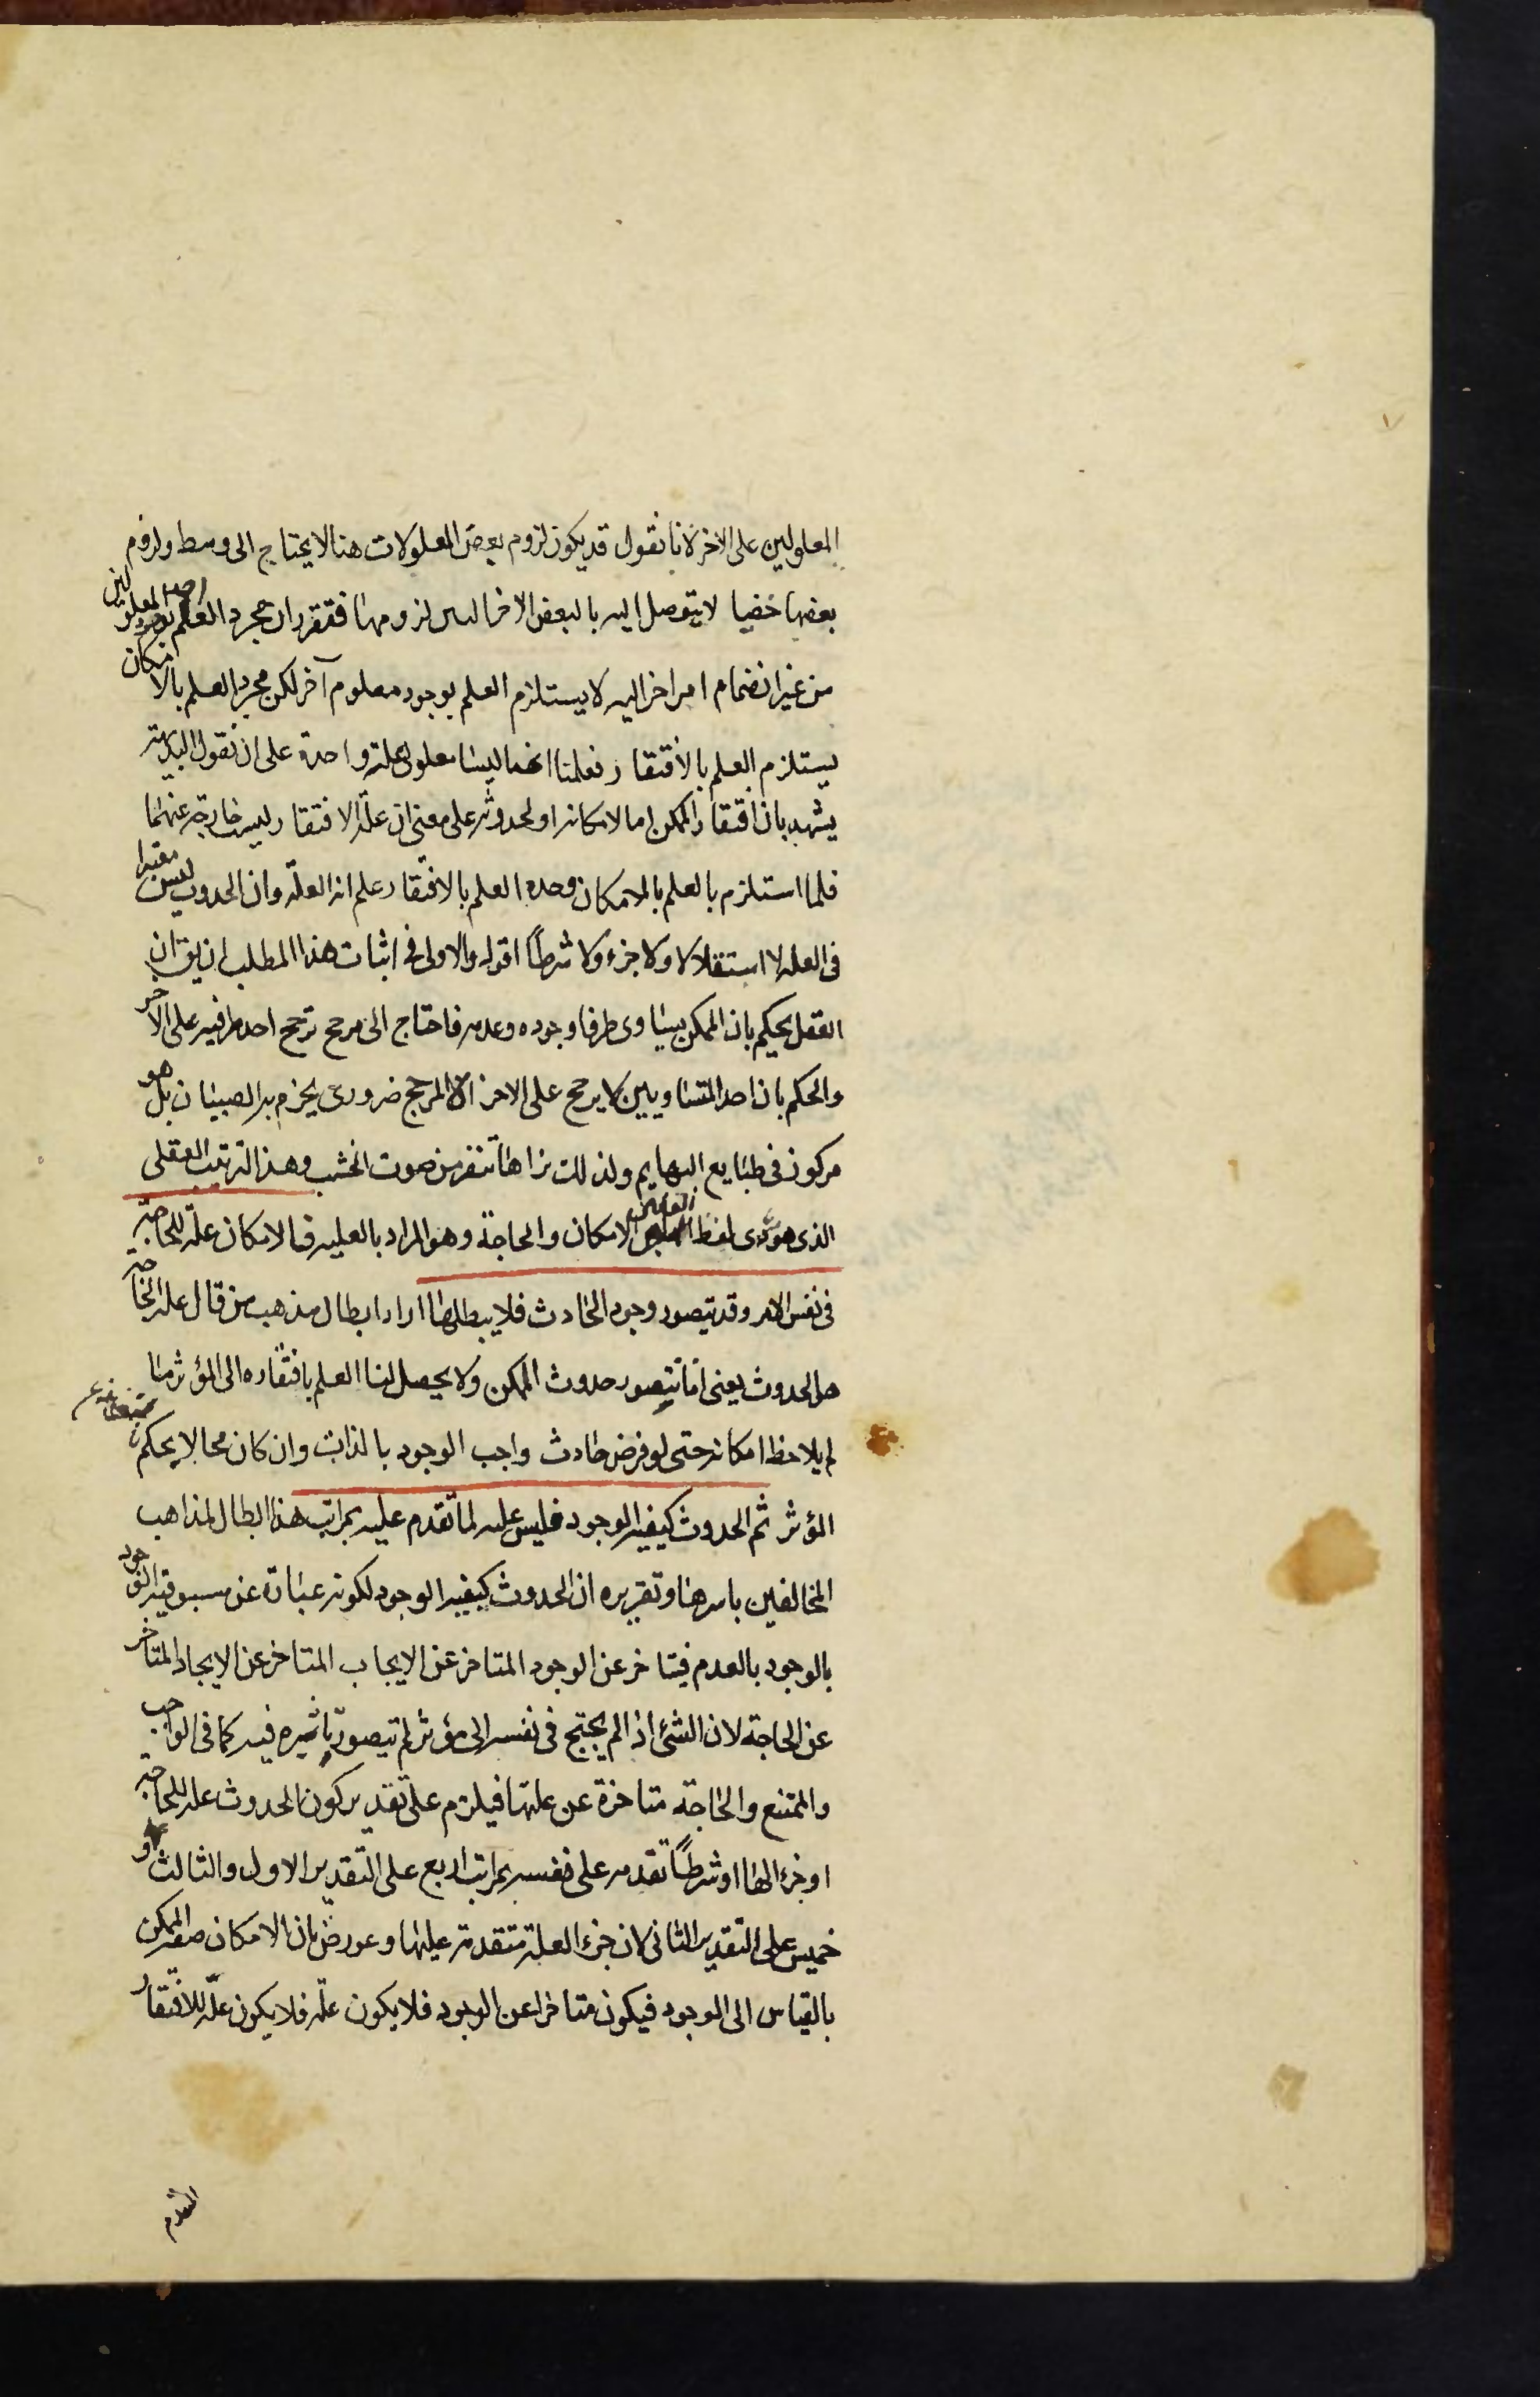 المعلولين على الاخر لانا نقول قد يكون لزوم بعض المعلولات هنا لا يحتاج الى وسط ولزوم
بعضها خفيا لا يتوصل اليه بالبعض الاخر البين لزومها فتقرر ان مجرد العلم بوجود احد المعلولين
من غير انضمام امر اخر اليه لا يستلزم العلم بوجود معلوم آخر لكن مجرد العلم بالامكان
يستلزم العلم بالافتقار فعلمنا انهما ليسا معلولى علة واحدة على ان نقول البديهة
يشهد بان افتقار الممكن اما لامكانه او لحدوثه على معنى ان علة الافتقار ليست خارجة عنهما
فلما استلزم بالعلم بالامكان وحده العلم بالافتقار علم انه العلة وان الحدوث ليس معتبرا
فى العلة لا استقلالا ولا جزء ولا شرطاً اقول والاولى فى اثبات هذا المطلب ان يق ان
العقل يحكم بان الممكن يساوى طرفا وجوده وعدمه فاحتاج الى مرجح ترجح احد طرفيه على الاخر
والحكم بان احد المتساويين لا يرجح على الاخر الا لمرجح ضرورى يجزم به الصبيان بل هو
مركوز فى طبايع البهايم ولذلك تراها تنفر من صوت الخشب وهذا الترتيب العقلى
الذى هو مؤدى لفظ الفاء بين الامكان والحاجة وهو المراد بالعلية فالامكان علة للحاجة
فى نفس الامر وقد يتصور وجود الحادث فلا يبطلها اراد ابطال مذهب من قال علة الحاجة
هى الحدوث يعنى انا نتصور حدوث الممكن ولا يحصل لنا العلم بافتقاره الى المؤثر ما
لم يلاحظ امكانه حتى لو فرض حادث واجب الوجود بالذات وان كان محالا يحكم باستغنائه عن
المؤثر ثم الحدوث كيفية الوجود فليس علة لما تقدم عليه بمراتب هذا ابطال لمذاهب
المخالفين باسرها وتقريره ان الحدوث كيفية الوجود لكونه عبارة عن مسبوقية الوجود
بالوجود بالعدم فيتاخر عن الوجود المتاخر عن الايجاب المتاخر عن الايجاد المتاخر
عن الحاجة لان الشئ اذا لم يحتج فى نفسه الى مؤثر لم يتصور تاثيره فيه كما فى الواجب
والممتنع والحاجة متاخرة عن علتها فيلزم على تقدير كون الحدوث علة للحاجة
او جزءا لها او شرطاً تقدمه على نفسه بمراتب اربع على التقدير الاول والثالث و
خمس على التقدير الثانى لان جزء العلة متقدمة عليها وعورض بان الامكان صفة الممكن
بالقياس الى الوجود فيكون متاخرا عن الوجود فلا يكون علة فلا يكون علة للافتقار
المتقدم